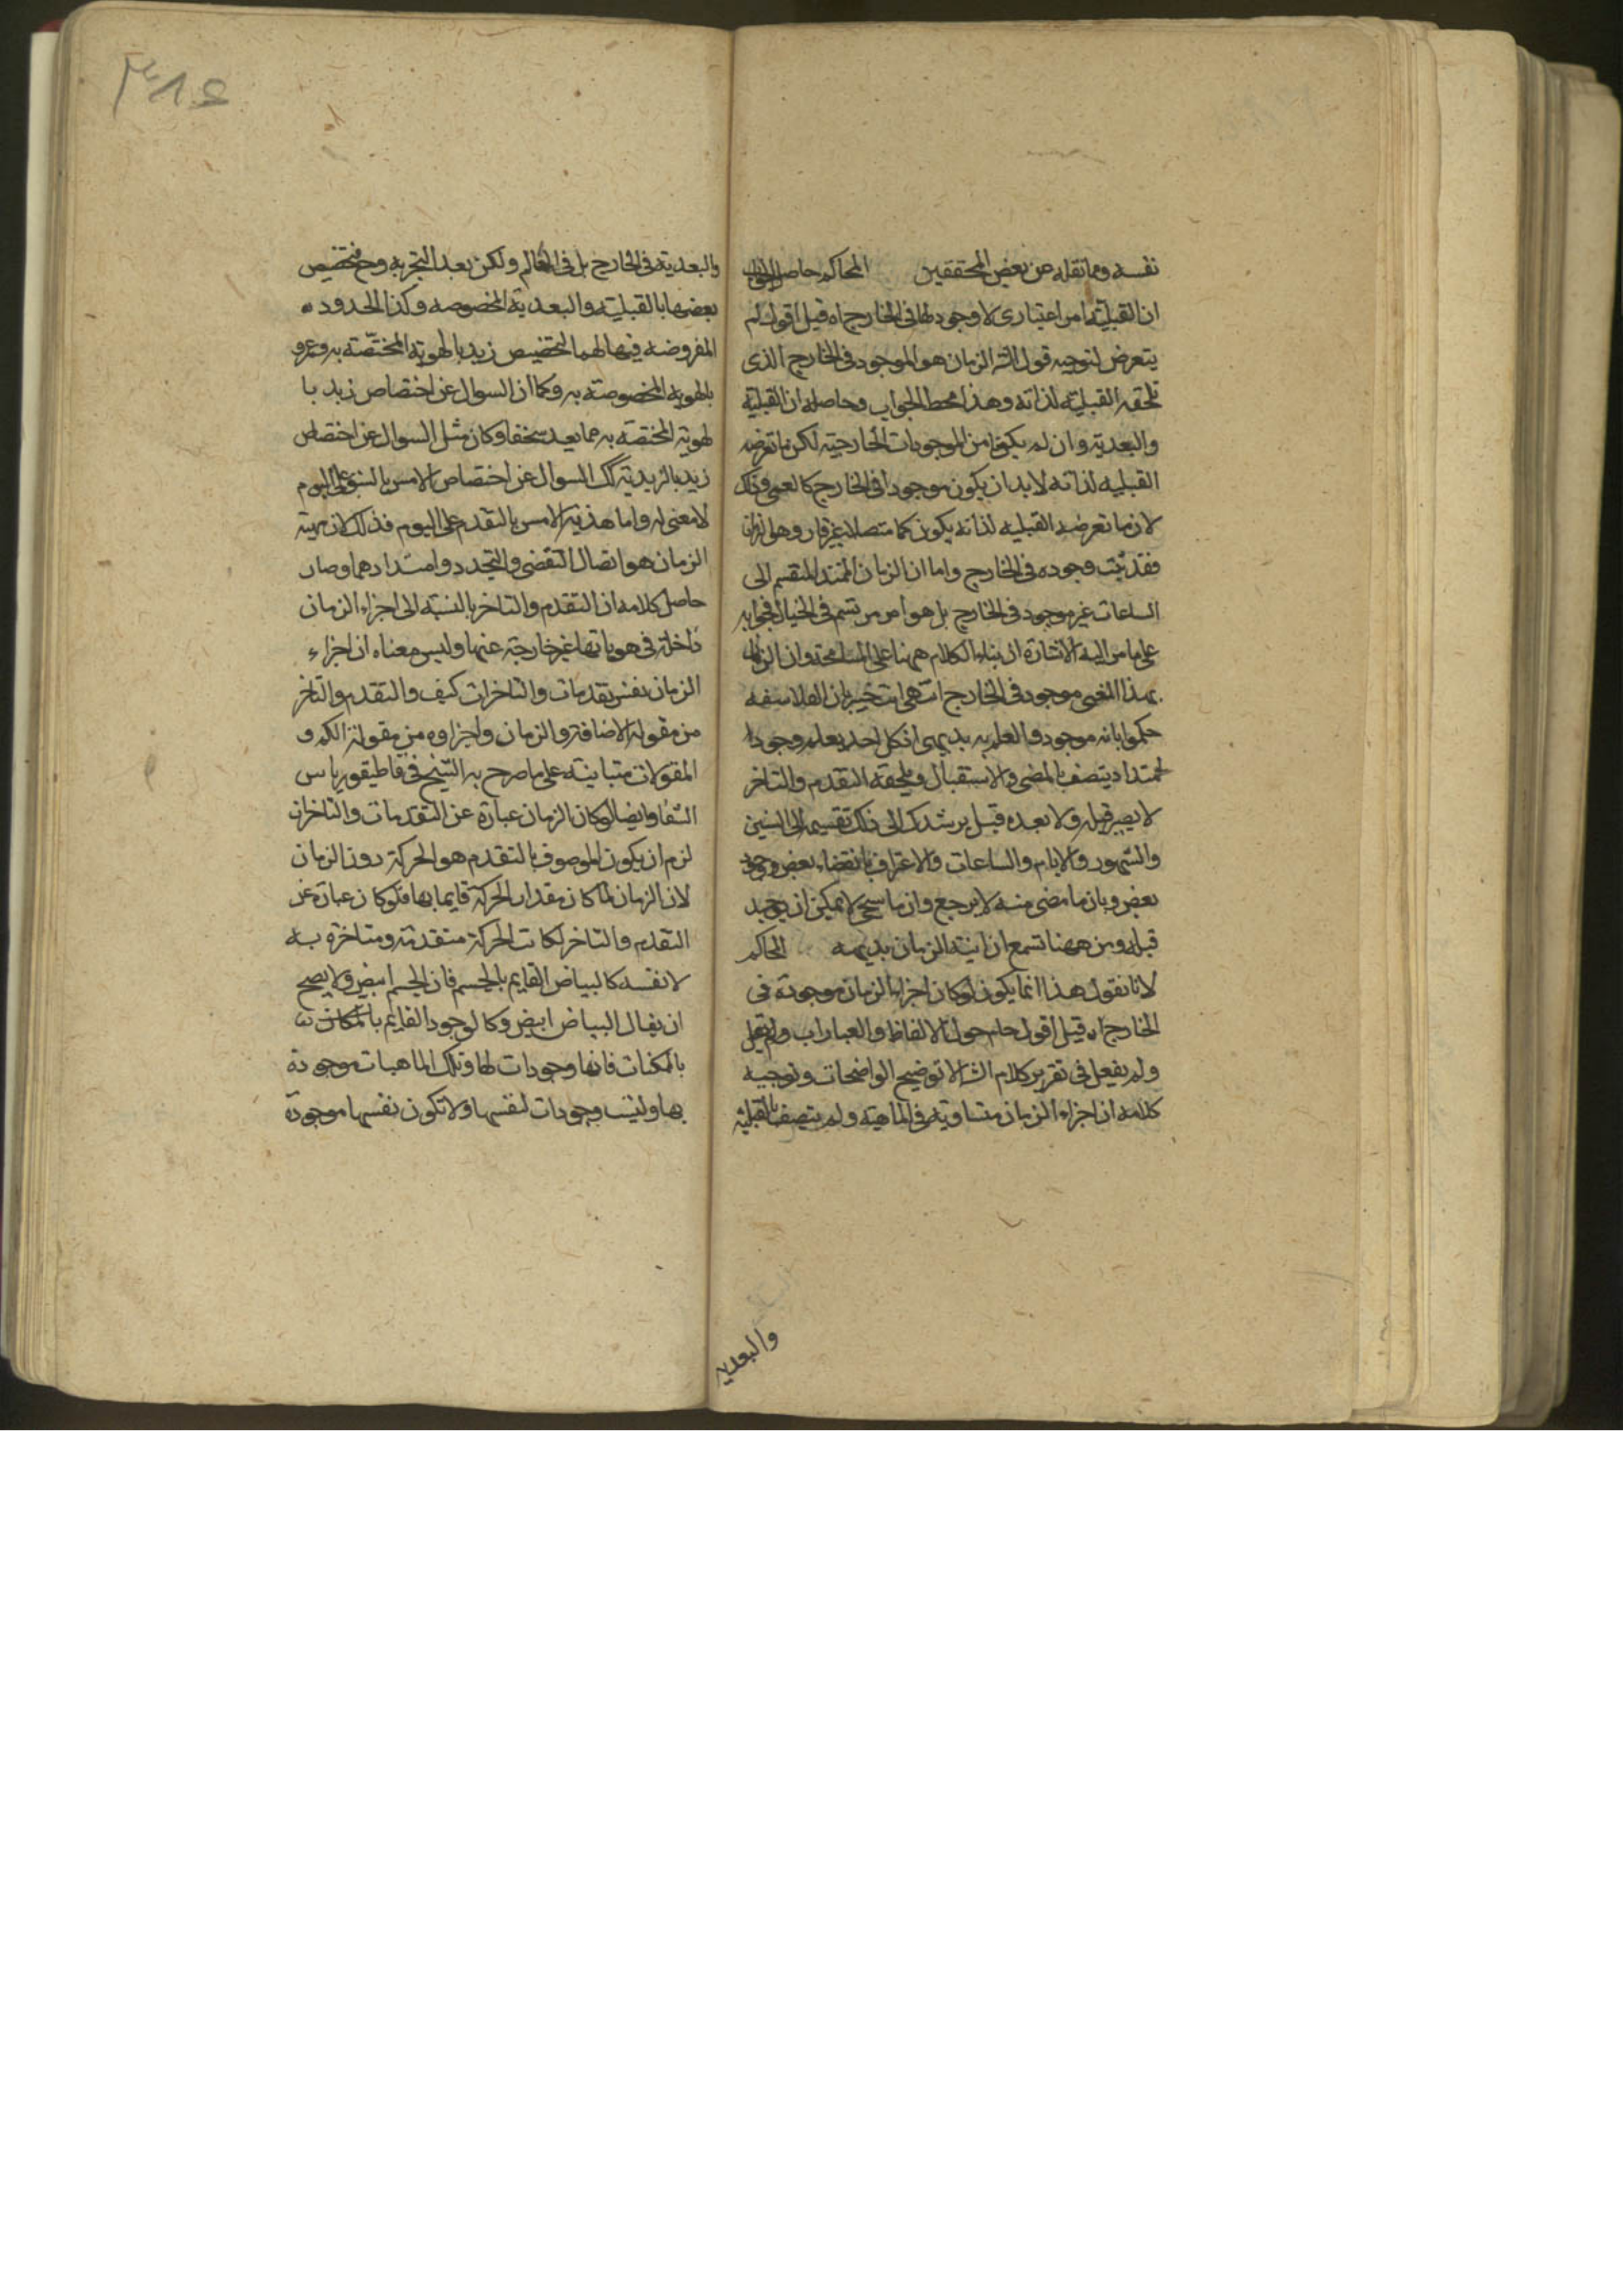 نفسه ومما نقله عن بعض المحققين المحاكم حاصل الجواب
ان القبلية امر اعتباري لا وجود لها في الخارج اه قيل اقول لم
يتعرض لتوجيه قول الش الزمان هو الموجود في الخارج الذي
تلحقه القبلية لذاته وهذا محط الجواب وحاصله ان القبلية
والبعدية وان لم يكونا من الموجودات الخارجية لكن ما تعرضه
القبلية لذاته لابد ان يكون موجودا في الخارج كالعمى وذلك
لان ما تعرضه القبليه لذاته يكون كما متصلا غير قار وهو الزمان
فقد ثبت وجوده في الخارج واما ان الزمان الممتد المنقسم الى
الساعات غير موجود في الخارج بل هو امر مرتسم في الخيال فجوابه
على ما مر اليه الاشارة ان بناء الكلام ههنا على المسامحة وان الزمان
بهذا المعنى موجود في الخارج انتهى انت خبير بان الفلاسفه
حكموا بانه موجود والعلم به بديهى اذ كل احد يعلم وجودا
لممتد اد يتصف بالمضى والاستقبال ويلحقه التقدم والتاخر
لا يصير قبله ولا بعده قبل يرشدك الى ذلك تقسيمه الى السنين
والشهور والايام والساعات والاعتراف بانقضاء بعض وجود
بعض وبان ما مضى منه لا يرجع وان ما سيجئ لا يمكن ان يوجد
قبله ومن ههنا تسمع ان انية الزمان بديهيه المحاكم
لانا نقول هذا انما يكون لو كان اجزاء الزمان موجودة في
الخارج اه قيل اقول حام حول الالفاظ والعبارات ولم
ولم يفعل في تقرير كلام الش الا توضيح الواضحات وتوجيه
كلامه ان اجزاء الزمان متساوية في الماهية ولم يتصف بالقبلية
والبعدية
والبعدية في الخارج بل في العالم ولكن بعد التجزية وح فتخصيص
بعضها بالقبلية والبعدية المخصوصه وكذا الحدود
المفروضه فيها لهما كتخصيص زيد بالهوية المختصة به وعمرو
بالهوية المخصوصة به وكما ان السوال عن اختصاص زيد با
لهوية المختصة به مما يعد سخفا وكان مثل السوال عن اختصاص
زيد بالزيدية كك السوال عن اختصاص الامس بالسبق على اليوم
لا معنى له واما هذية الامس بالتقدم على اليوم فذلك لان مهية
الزمان هو اتصال التقضى والتجدد وامتدادهما وصار
حاصل كلامه ان التقدم والتاخر بالنسبة الى اجزاء الزمان
داخلة في هوياتها غير خارجة عنها وليس معناه ان اجزاء
الزمان نفس تقدمات والتاخرات كيف والتقدم والتاخر
من مقولة الاضافة والزمان واجزاوه من مقولة الكم و
المقولات متباينة على ما صرح به الشيخ في قاطيقورياس
الشفا وايضا لو كان الزمان عبارة عن التقدمات والتاخرات
لزم ان يكون الموصوف بالتقدم هو الحركة دون الزمان
لان الزمان لما كان مقدار الحركة قايما بها فلو كان عبارة عن
التقدم والتاخر لكانت الحركة متقدمة ومتاخرة به
لا نفسه كالبياض القايم بالجسم فان الجسم ابيض ولا يصح
ان يقال البياض ابيض وكالوجود القايم
بالممكنات فانها وجودات لها وتلك الماهيات موجودة
بها وليست وجودات لنفسها ولا تكون نفسها موجودة